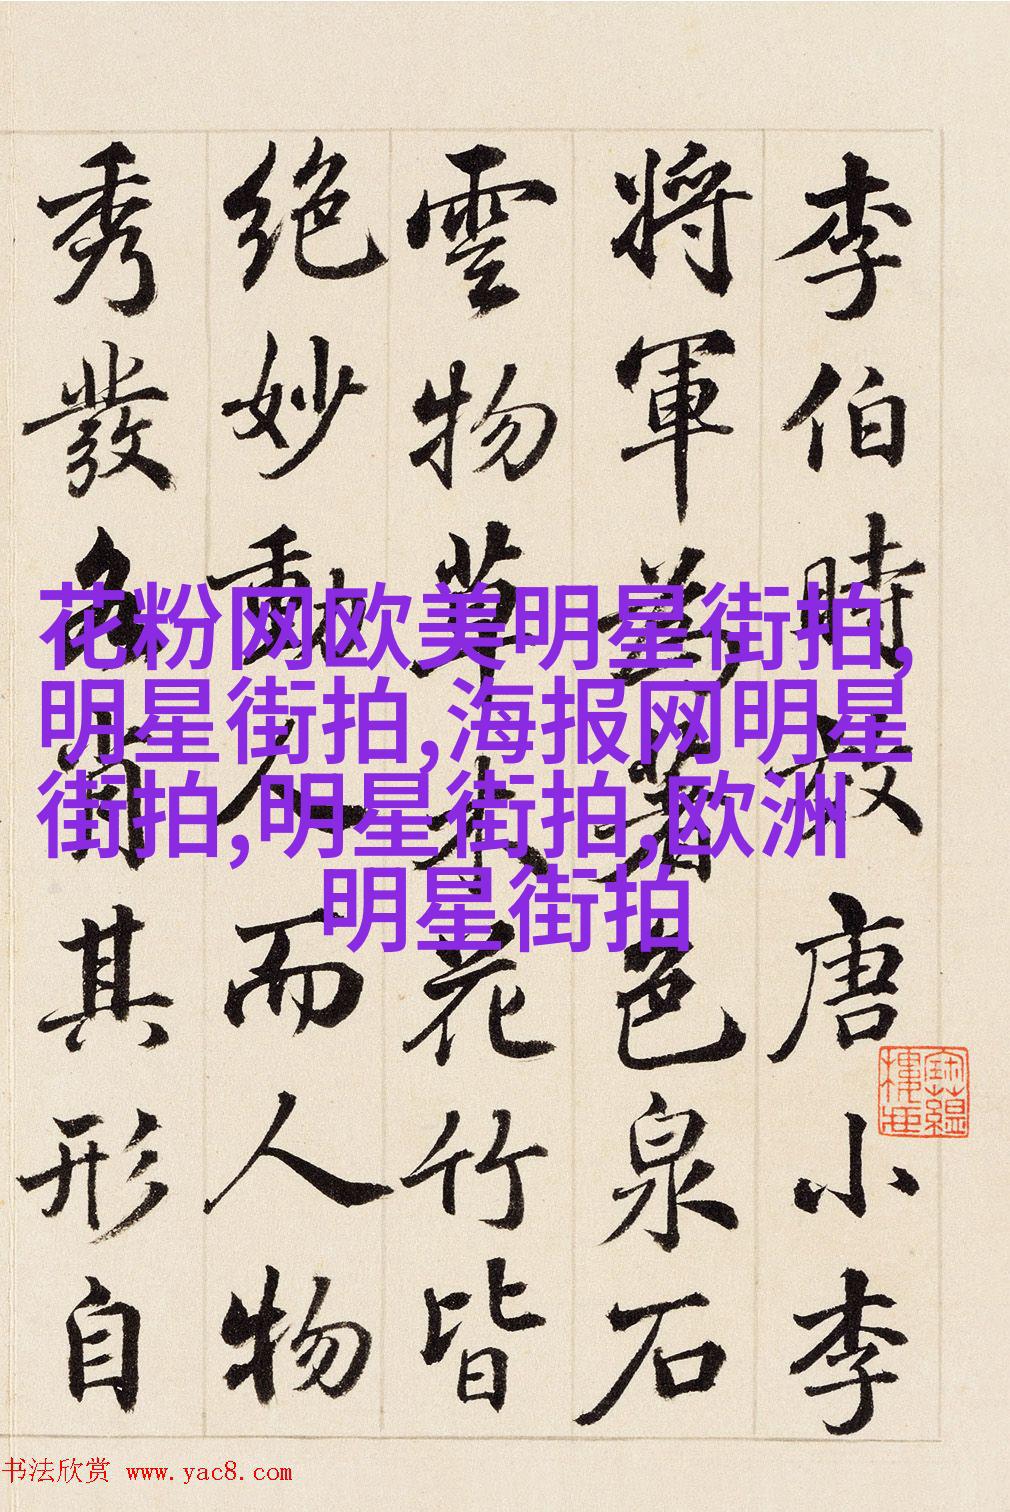 李伯時效唐小李
將軍為著色泉石
雲物草木花竹皆
絕妙動人而人物
秀發各肖其形自
花粉网欧美明星街拍,
明星街拍,海报网明星
街拍,明星街拍,欧洲
明星街拍
书法欣赏 www.yac8.com